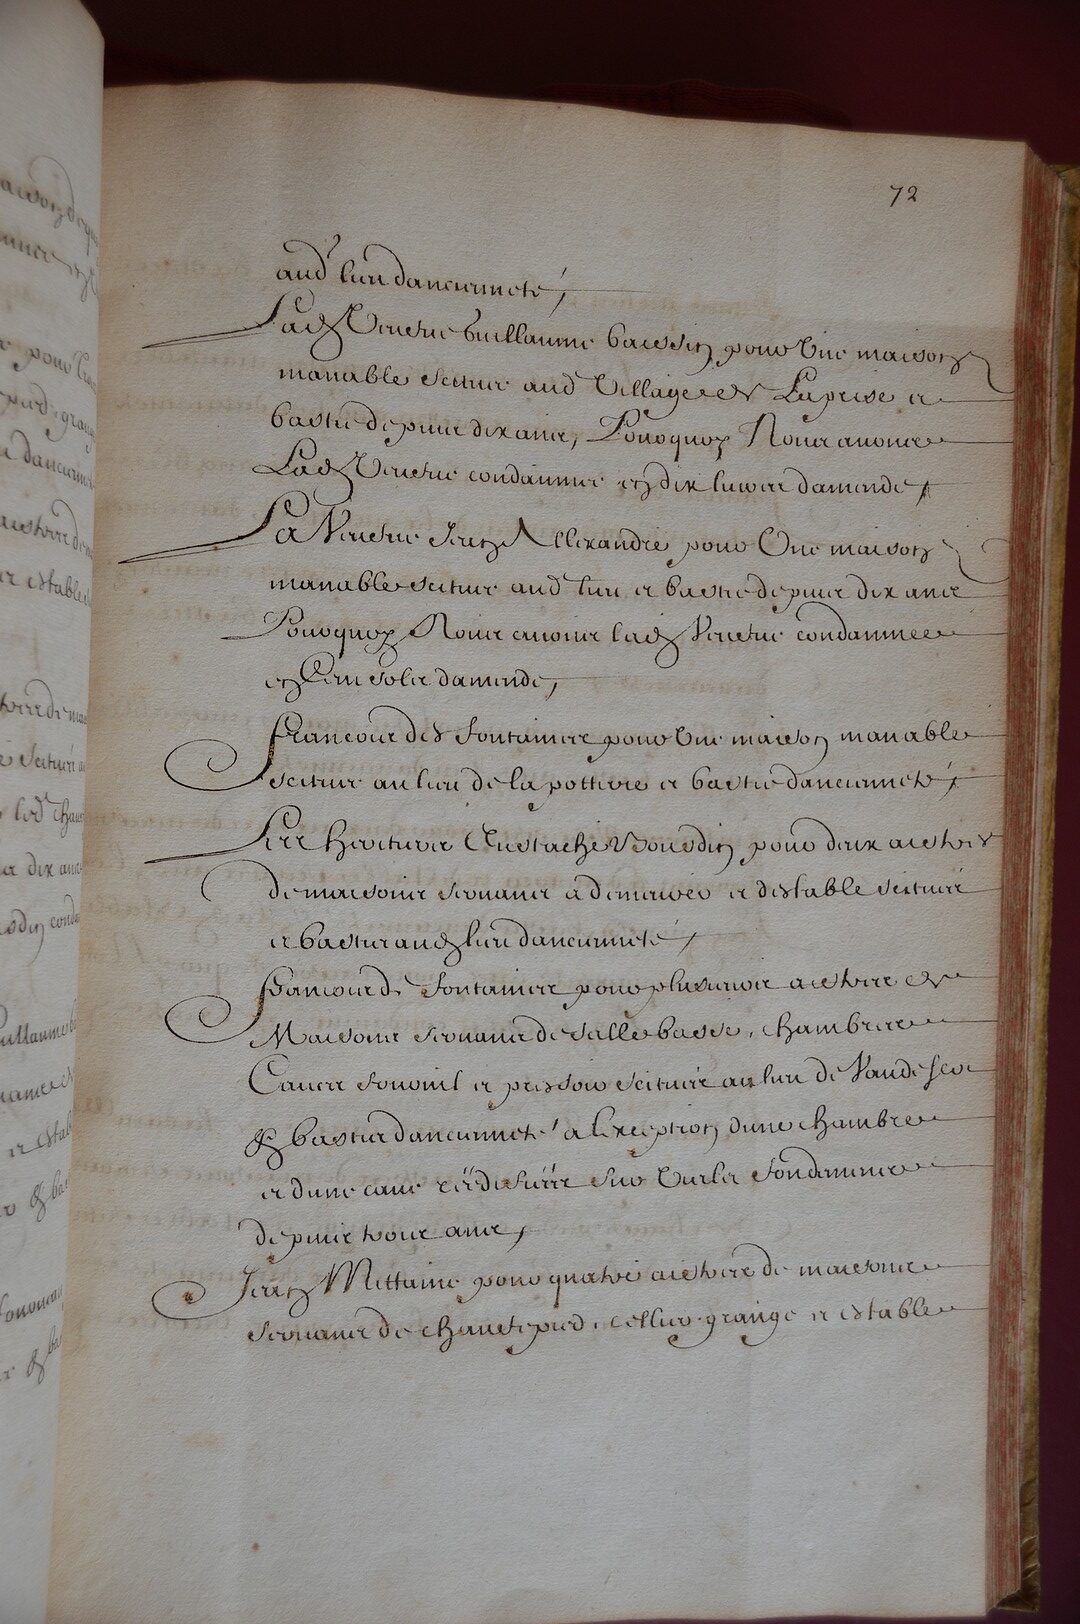 72
aud lieu dancienneté /
Lad Veufve Guillaume baessin pour Une maison
manable scituee aud Village et Laprise et
bastie depuis dix ans, Pourquoy Nous avons
Lad Veufve condamnee en dix livres damende,
La Veufve Jean Allexandre pour Une maison
manable scituee aud lieu et bastie depuis dix ans
Pourquoy Nous avons lad Veufve condamnee
en Cent solz damende,
francois des fontaines pour Une maison manable
scituee au lieu de la potterie et bastie dancienneté,
Les heritiers Eustache Bourdin pour deux aistres
de maisons servans a demeurer et destable scituez
et bastis aud lieu dancienneté,
francois de fontaines pour plusieurs aistres de
Maisons servans de salle basse, chambres
Caves fournil et pressoir scituez au lieu de
& bastis dancienneté a lexception dune chambre
et dune cave reedifiees sur Vieilz fondemens
depuis trois ans,
Jean Mettaine pour quatre aistres de maisons
servans de chaustepied, cellier grange et estable